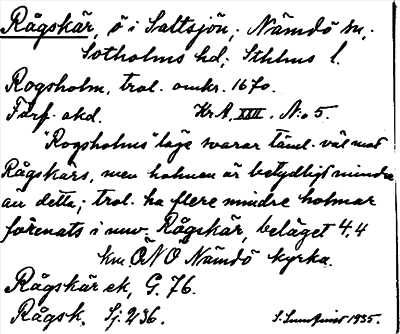 Rågskär, ö i Saltsjön; Nämdö sn;
Sotholms hd; Sthlms l.
Rogsholm, trol. omkr. 1670.
Förf. okd. Kr.A. XXII. N:o 5.
"Rogsholms" läge svarar täml. väl mot
Rågskärs, men holmen är betydligt mindre
än detta; trol. ha flere mindre holmar
förenats i nuv. Rågskär, beläget 4.4
km ÖNÖ Nämdö kyrka.
Rågskär ek, G. 76.
Rågsk. Sj. 236. 1935.